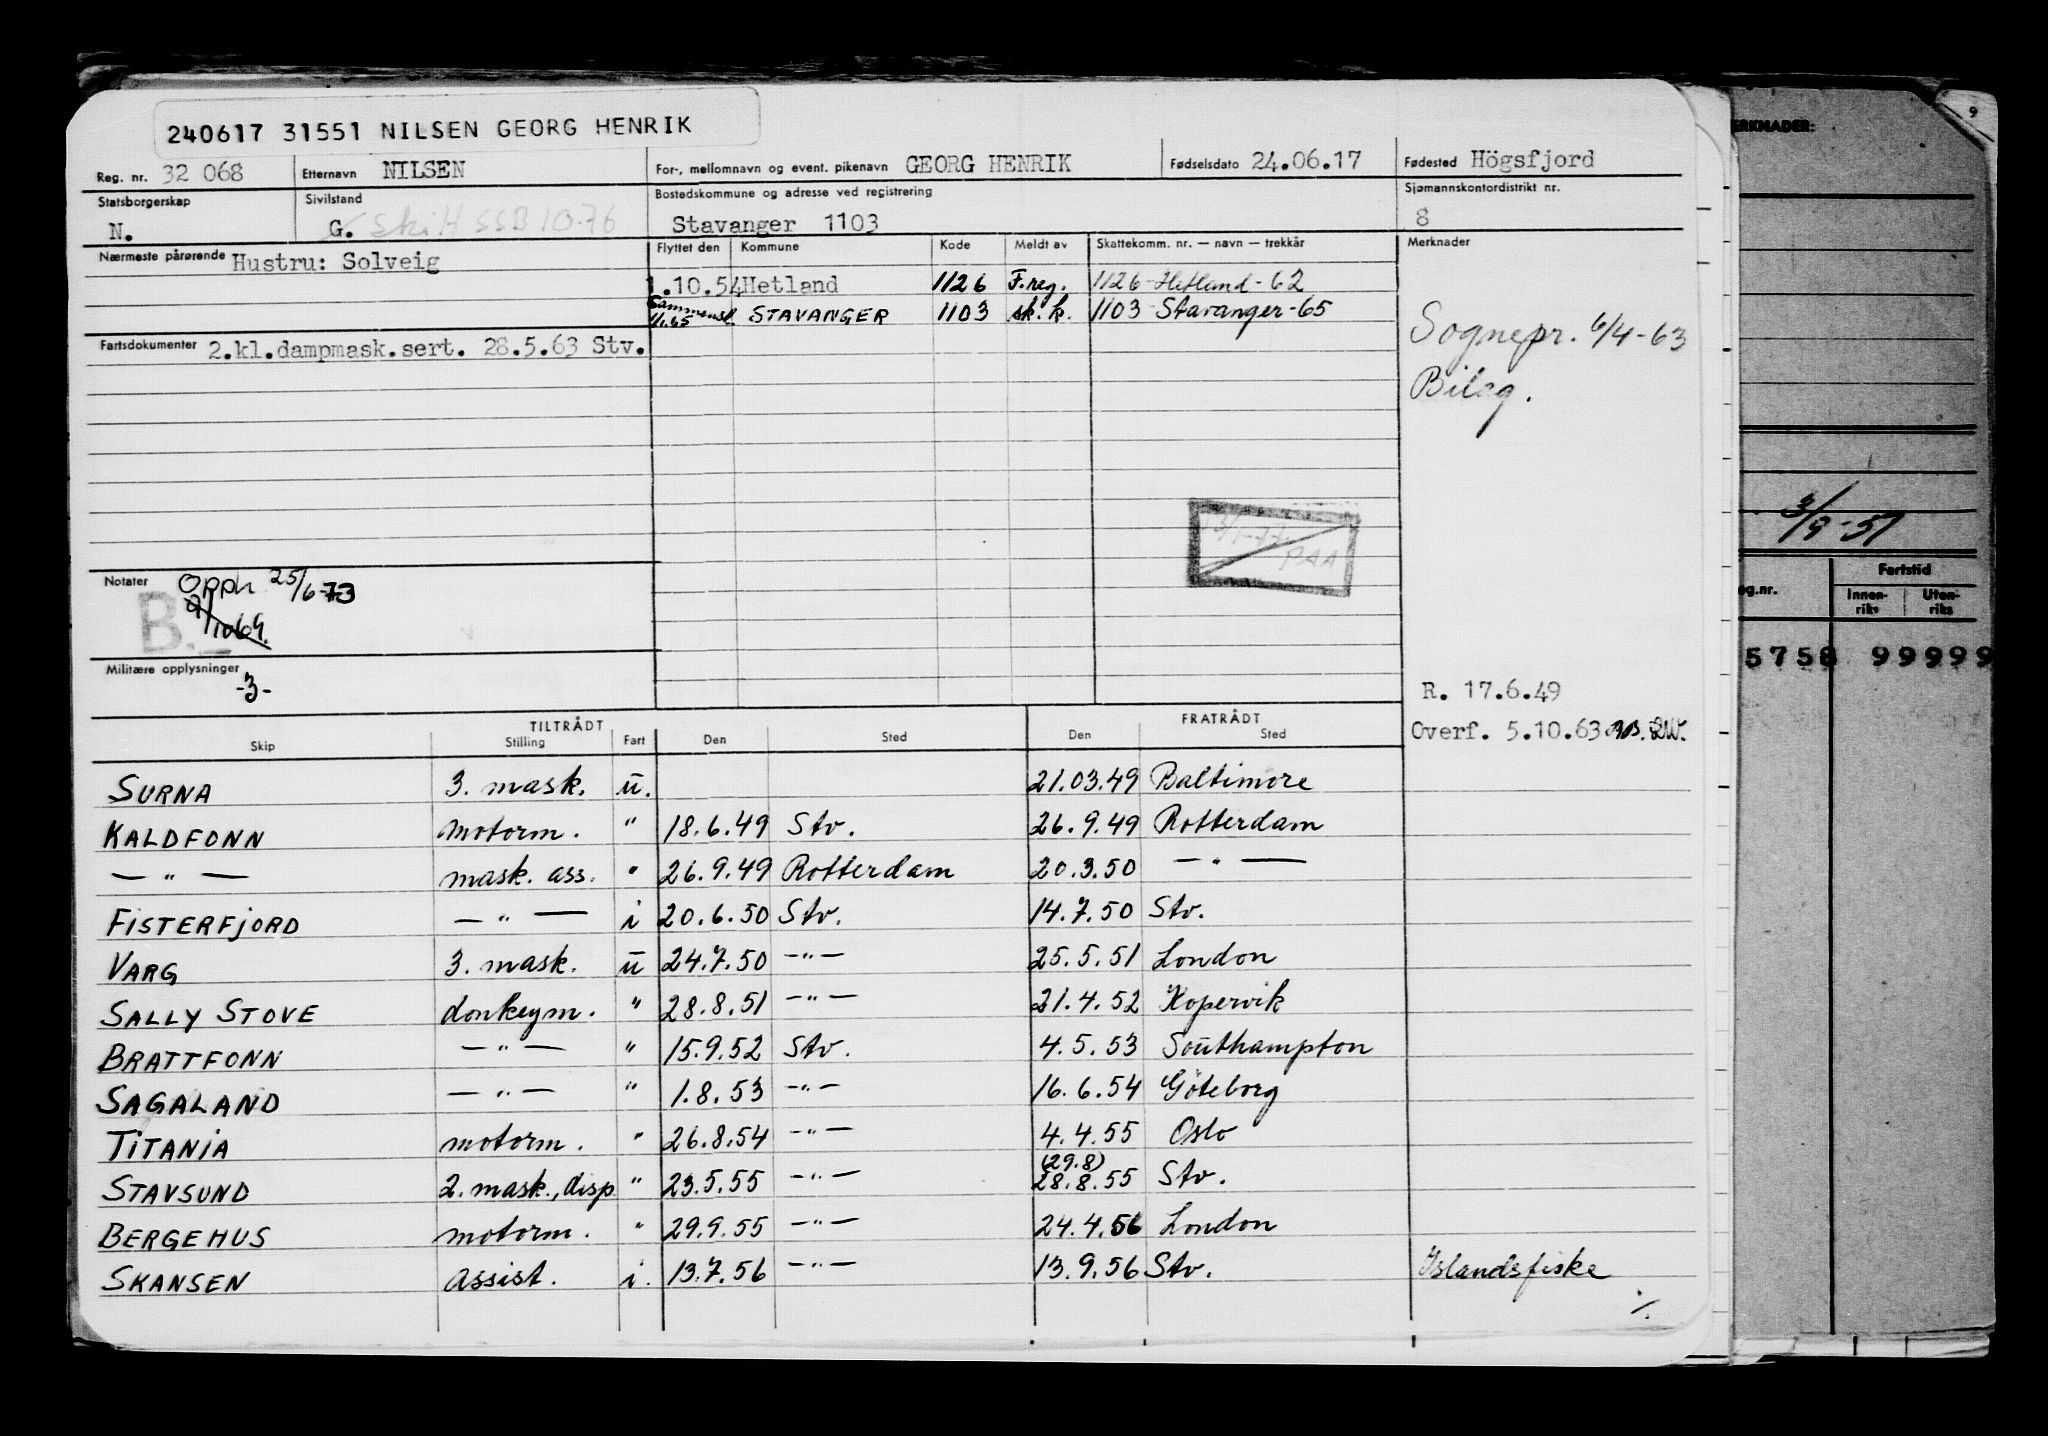 240617 31551 NILSEN GEORG HENRIK
Reg. nr. 32 068 Etternavn NILSEN For-, mellomnavn og event. pikenavn GEORG HENRIK Fødselsdato 24.06.17 Fødested Högsfjord
Statsborgerskap N. Sivilstand G. Skilt SSB 10-76 Bostedskommune og adresse ved registrering Stavanger 1103 Sjømannskontordistrikt nr. 8
Nærmeste pårørende Hustru: Solveig
Flyttet den Kommune Kode Meldt av Skattekomm. nr. — navn — trekkår Merknader
1.10.54 Hetland 1126 F.reg. 1126-Hetland-62
Sammensl. 1/1.65 STAVANGER 1103 sk.k. 1103-Stavanger-65
Sognepr. 6/4-63
Bilag.
Fartsdokumenter 2.kl.dampmask.sert. 28.5.63 Stv.
3/1-77 PAA
Notater Opph 25/6-73
9/10 69.
B.
Militære opplysninger -3-
R. 17.6.49
Overf. 5.10.63
TILTRÅDT FRATRÅDT
Skip Stilling Fart Den Sted Den Sted
SURNA 3. mask. u. 21.03.49 Baltimore
KALDFONN motorm. " 18.6.49 Stv. 26.9.49 Rotterdam
— " — mask. ass. " 26.9.49 Rotterdam 20.3.50 — " —
FISTERFJORD — " — i 20.6.50 Stv. 14.7.50 Stv.
VARG 3. mask. u 24.7.50 — " — 25.5.51 London
SALLY STOVE donkeym. " 28.8.51 — " — 21.4.52 Kopervik
BRATTFONN — " — " 15.9.52 Stv. 4.5.53 Southampton
SAGALAND — " — " 1.8.53 — " — 16.6.54 Göteborg
TITANIA motorm. " 26.8.54 — " — 4.4.55 Oslo
STAVSUND 2. mask., disp " 23.5.55 — " — (29.8) 28.8.55 Stv.
BERGEHUS motorm. " 29.9.55 — " — 24.4.56 London
SKANSEN assist. i. 13.7.56 — " — 13.9.56 Stv. Islandsfiske
./.
9
ERKNADER:
3/9-51
eg.nr. Fartstid
Innen-riks Uten-riks
5758 99999